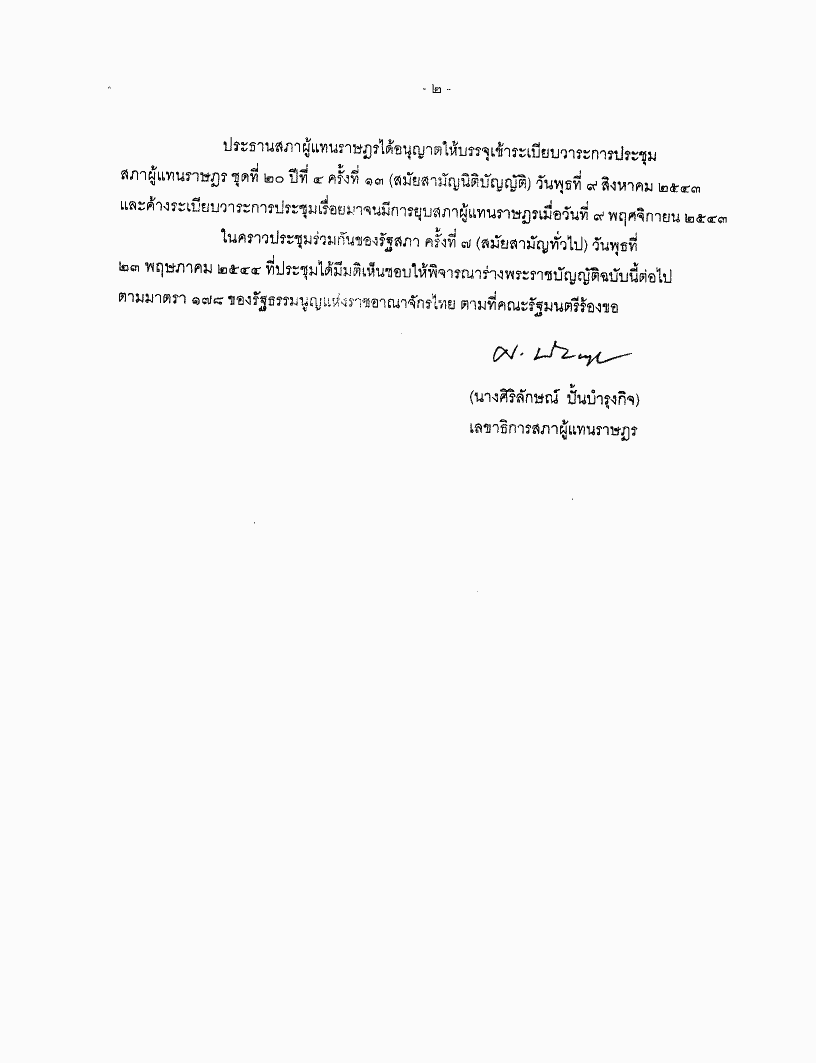 - ๒ -
ประธานสภาผู้แทนราษฎรได้อนุญาตให้บรรจุเข้าระเบียบวาระการประชุม
สภาผู้แทนราษฎร ชุดที่ ๒๐ ปีที่ ๔ ครั้งที่ ๑๓ (สมัยสามัญนิติบัญญัติ) วันพุธที่ ๙ สิงหาคม ๒๕๔๓
และค้างระเบียบวาระการประชุมเรื่อยมาจนมีการยุบสภาผู้แทนราษฎรเมื่อวันที่ ๙ พฤศจิกายน ๒๕๔๓
ในคราวประชุมร่วมกันของรัฐสภา ครั้งที่ ๗ (สมัยสามัญทั่วไป) วันพุธที่
๒๓ พฤษภาคม ๒๕๔๔ ที่ประชุมได้มีมติเห็นชอบให้พิจารณาร่างพระราชบัญญัติฉบับนี้ต่อไป
ตามมาตรา ๑๗๘ ของรัฐธรรมนูญแห่งราชอาณาจักรไทย ตามที่คณะรัฐมนตรีร้องขอ
(นางศิริลักษณ์ ปั้นบำรุงกิจ)
เลขาธิการสภาผู้แทนราษฎร